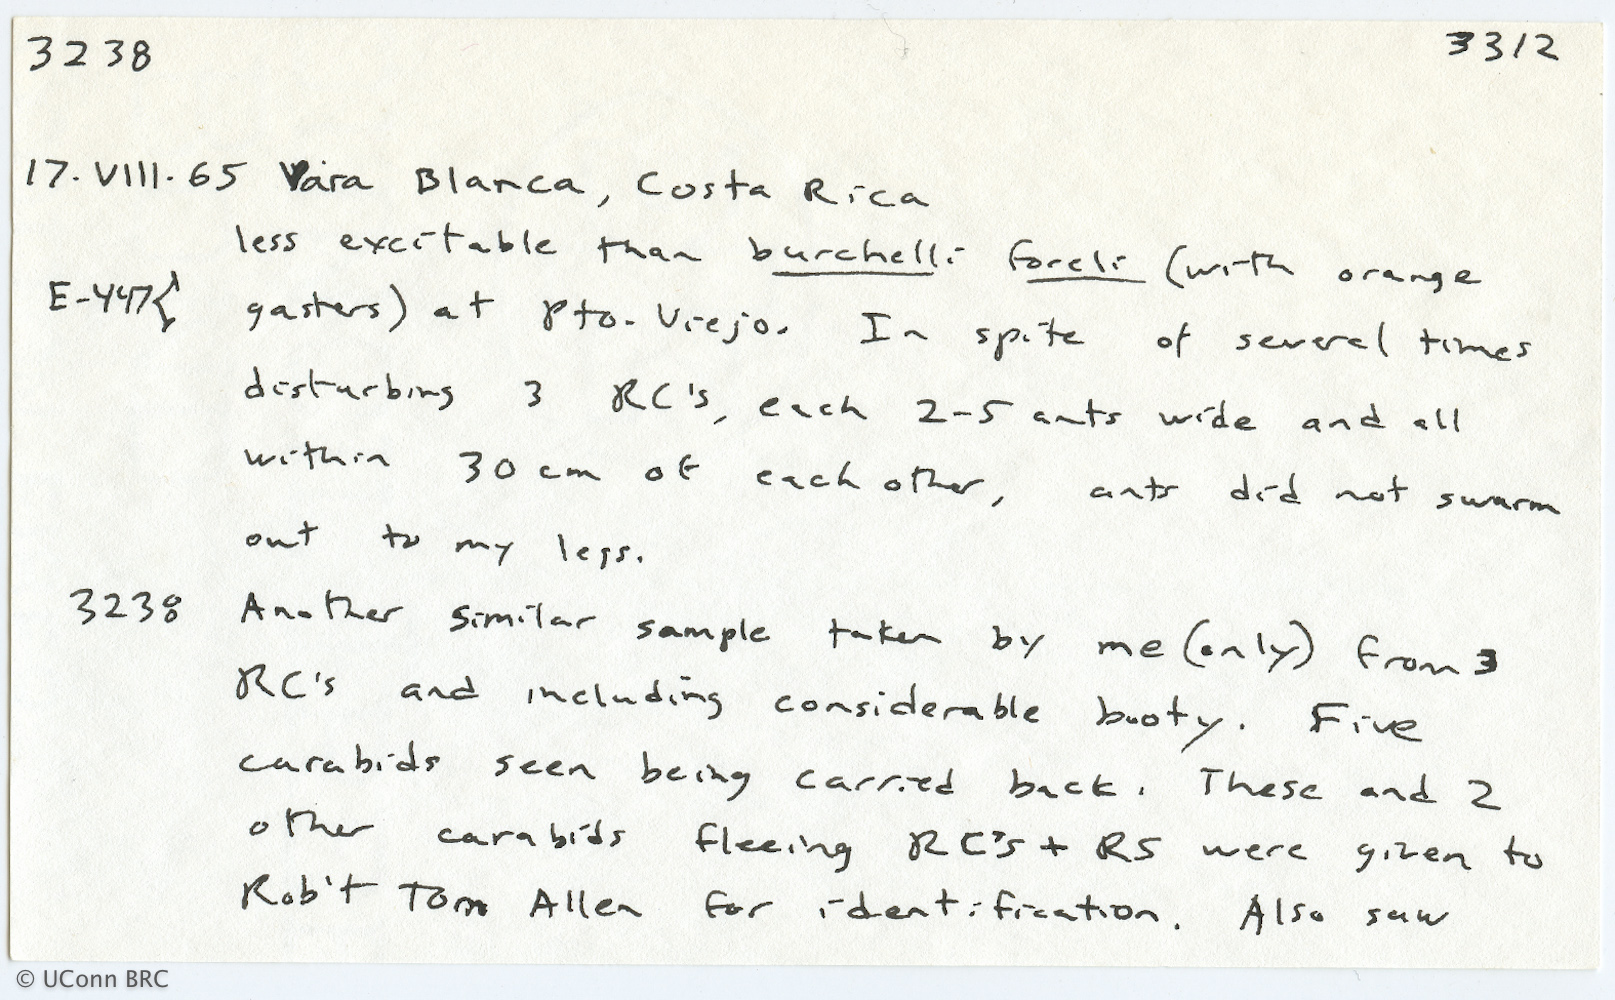 3238 3312
17.VIII.65 Vara Blanca, Costa Rica
less excitable than burchelli foreli (with orange
E-447 gasters) at Pto. Viejo. In spite of several times
disturbing 3 RC's, each 2-5 ants wide and all
within 30 cm of each other, ants did not swarm
out to my legs.
3238 Another similar sample taken by me (only) from 3
RC's and including considerable booty. Five
carabids seen being carried back. These and 2
other carabids fleeing RC's + RS were given to
Rob't Tom Allen for identification. Also saw
© UConn BRC